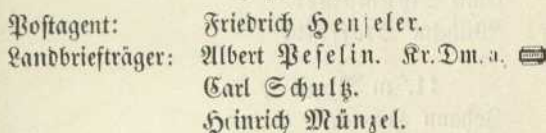 Postagent: Friedrich Henseler.
Landbriefträger: Albert Peselin. Kr.Dm.a.
Carl Schultz.
Heinrich Münzel.